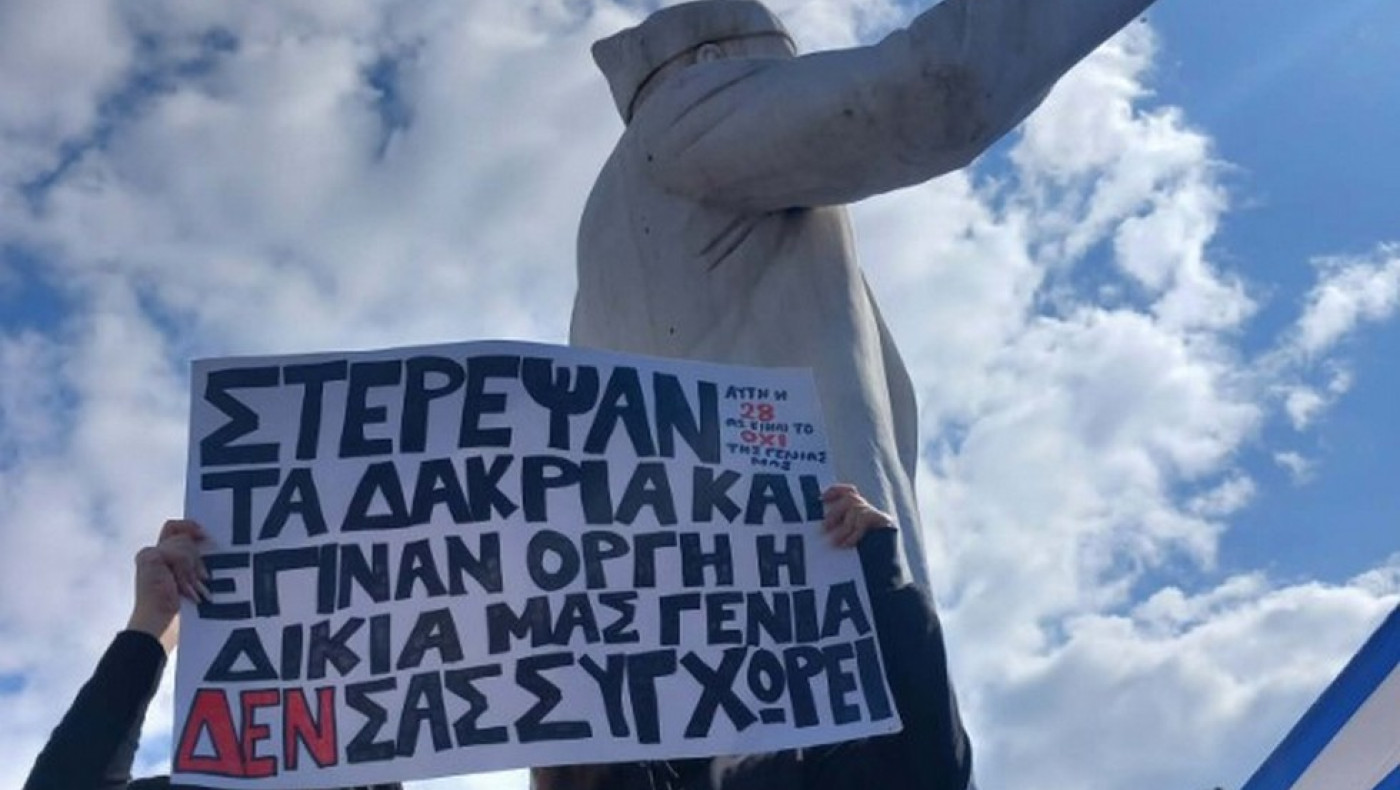 ΣΤΕΡΕΨΑΝ
ΤΑ ΔΑΚΡΙΑ ΚΑΙ
ΕΓΙΝΑΝ ΟΡΓΗ Η
ΔΙΚΙΑ ΜΑΣ ΓΕΝΙΑ
ΔΕΝ ΣΑΣ ΣΥΓΧΩΡΕΙ
ΑΥΤΗ Η
28
ΑΣ ΕΙΝΑΙ ΤΟ
ΟΧΙ
ΤΗΣ ΓΕΝΙΑΣ
ΜΑΣ